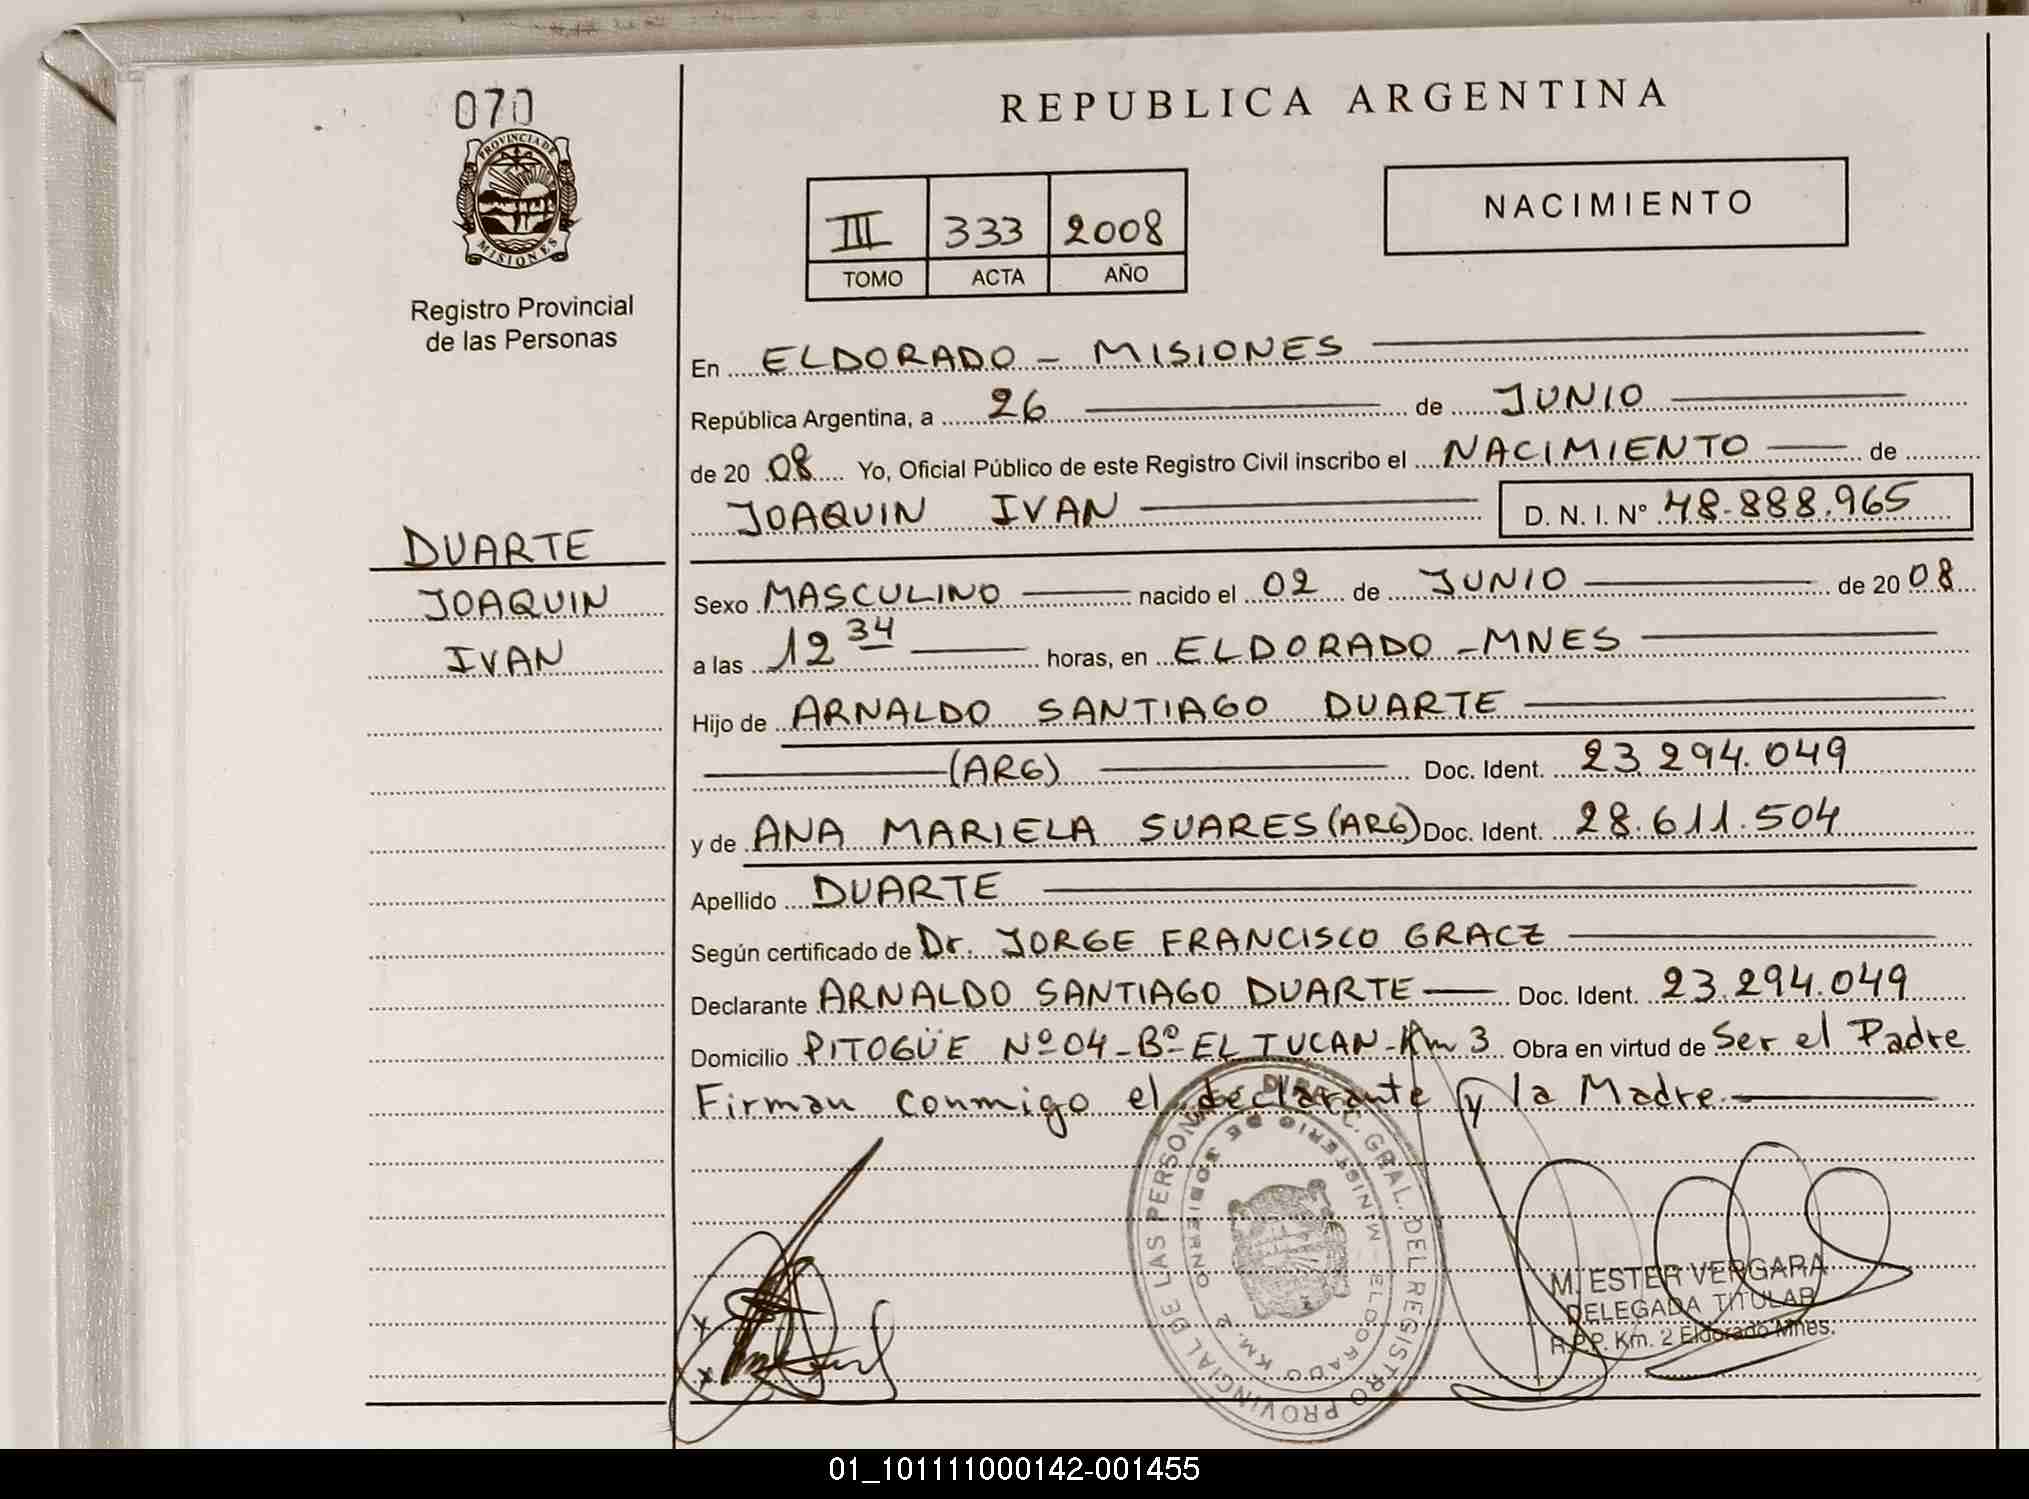 070
PROVINCIA DE
MISIONES
Registro Provincial
de las Personas
DUARTE
JOAQUIN
IVAN
REPUBLICA ARGENTINA
III 333 2008
TOMO ACTA AÑO
NACIMIENTO
En ELDORADO - MISIONES
República Argentina, a 26 de JUNIO
de 20 08 Yo, Oficial Público de este Registro Civil inscribo el NACIMIENTO de
JOAQUIN IVAN D. N. I. N° 48.888.965
Sexo MASCULINO nacido el 02 de JUNIO de 20 08
a las 12 34 horas, en ELDORADO - MNES
Hijo de ARNALDO SANTIAGO DUARTE
(ARG) Doc. Ident. 23.294.049
y de ANA MARIELA SUARES (ARG) Doc. Ident. 28.611.504
Apellido DUARTE
Según certificado de Dr. JORGE FRANCISCO GRACZ
Declarante ARNALDO SANTIAGO DUARTE Doc. Ident. 23.294.049
Domicilio PITOGÜE Nº 04 - Bº EL TUCAN - Km 3 Obra en virtud de Ser el Padre
Firman conmigo el declarante y la Madre.
DIREC. GRAL. DEL REGISTRO PROVINCIAL DE LAS PERSONAS
MINISTERIO DE GOBIERNO
ELDORADO KM. 2
M. ESTER VERGARA
DELEGADA TITULAR
R.P.P. Km. 2 Eldorado Mnes.
01_101111000142-001455